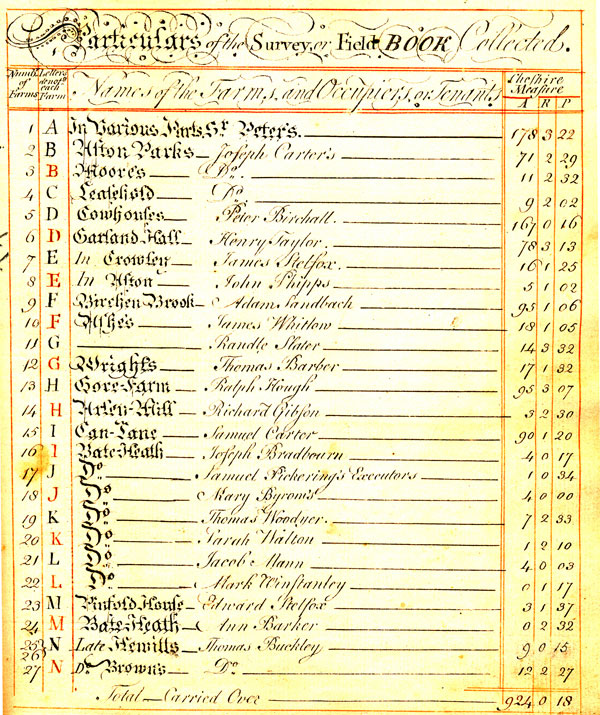 Particulars of the Survey, or Field BOOK Collected.
Numbr of Farms Letters denotg each Farm Names of the Farms, and Occupiers, or Tenants Cheshire Measure
A R P
1 A In Various Parts, Sr. Peter's. 178 3 22
2 B Aston Parks Joseph Carter's 71 2 29
3 B Moore's Do. 11 2 32
4 C Leasehold Do. 9 2 02
5 D Cowhouses Peter Birchall. 167 0 16
6 D Garland Hall Henry Taylor. 78 3 13
7 E In Crowley James Stelfox. 16 1 25
8 E In Aston John Phipps 5 1 02
9 F Birchen Brook Adam Sandbach 95 1 06
10 F Ashe's James Whitlow 18 1 05
11 G Randle Slater 14 3 32
12 G Wright's Thomas Barber 17 1 32
13 H Gore Farm Ralph Hough 95 3 07
14 H Arley Mill Richard Gibson 3 2 30
15 I Can Lane Samuel Carter 90 1 20
16 I Bate Heath Joseph Bradbourn 4 0 17
17 J Do. Samuel Pickering's Executors 1 0 34
18 J Do. Mary Byrom's 4 0 00
19 K Do. Thomas Woodyer. 7 2 33
20 K Do. Sarah Walton 1 2 10
21 L Do. Jacob Mann 4 0 03
22 L Do. Mark Winstanley 0 1 17
23 M Pinfold House Edward Stelfox 3 1 37
24 M Bate Heath Ann Barker 0 2 32
25 26 N Late Hewills Thomas Buckley 9 0 15
27 N Do. Brown's Do. 12 2 27
Total Carried Over 924 0 18